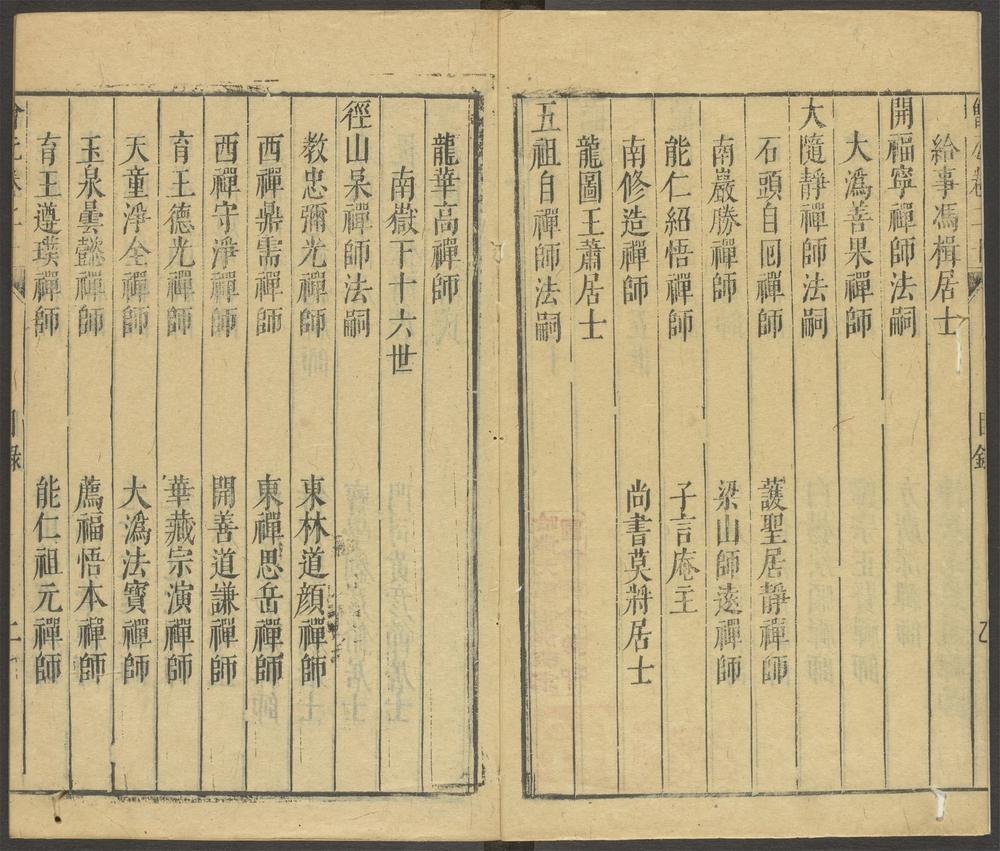 給事馮楫居士
開福寧禪師法嗣
大溈善果禪師
大隨靜禪師法嗣
石頭自回禪師 護聖居靜禪師
南巖勝禪師 梁山師遠禪師
能仁紹悟禪師 子言庵主
南修造禪師 尚書莫將居士
龍圖王蕭居士
五祖自禪師法嗣
龍華高禪師
南嶽下十六世
徑山杲禪師法嗣
教忠彌光禪師 東林道顏禪師
西禪鼎需禪師 東禪思岳禪師
西禪守淨禪師 開善道謙禪師
育王德光禪師 華藏宗演禪師
天童淨全禪師 大溈法寶禪師
玉泉曇懿禪師 薦福悟本禪師
育王遵璞禪師 能仁祖元禪師
目錄